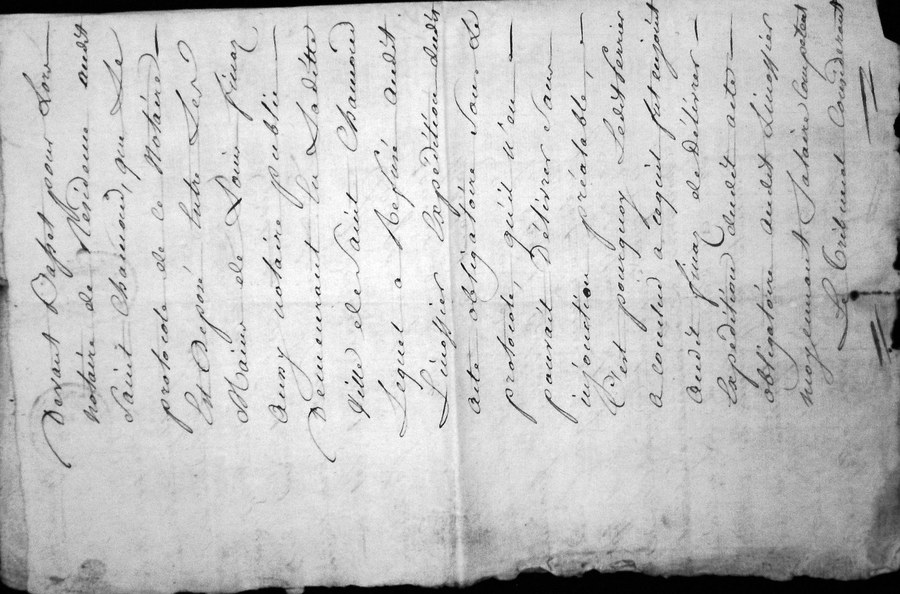 Devant Dapet pour Lors
notaire de Residence audit
Saint Chamond, que Le
protocole de ce Notaire
Est Deposé Entre Les
Mains de Louis finaz
aussy notaire public
Demeurant En Laditte
Ville de Saint Chamond
Lequel a Refusé audit
Linossier Lexpedition dudit
acte obligatoire Sous Le
protocole, qu'il n'en
pouvait Delivrer Sans
injonction préalable,
C'est pourquoy Ledit
a Conclud a ce qu'il fut enjoint
audit finaz de Délivrer
Expedition dudit acte
obligatoire audit Linossier
moyennant Salaire Competent
Le Tribunal Considerant